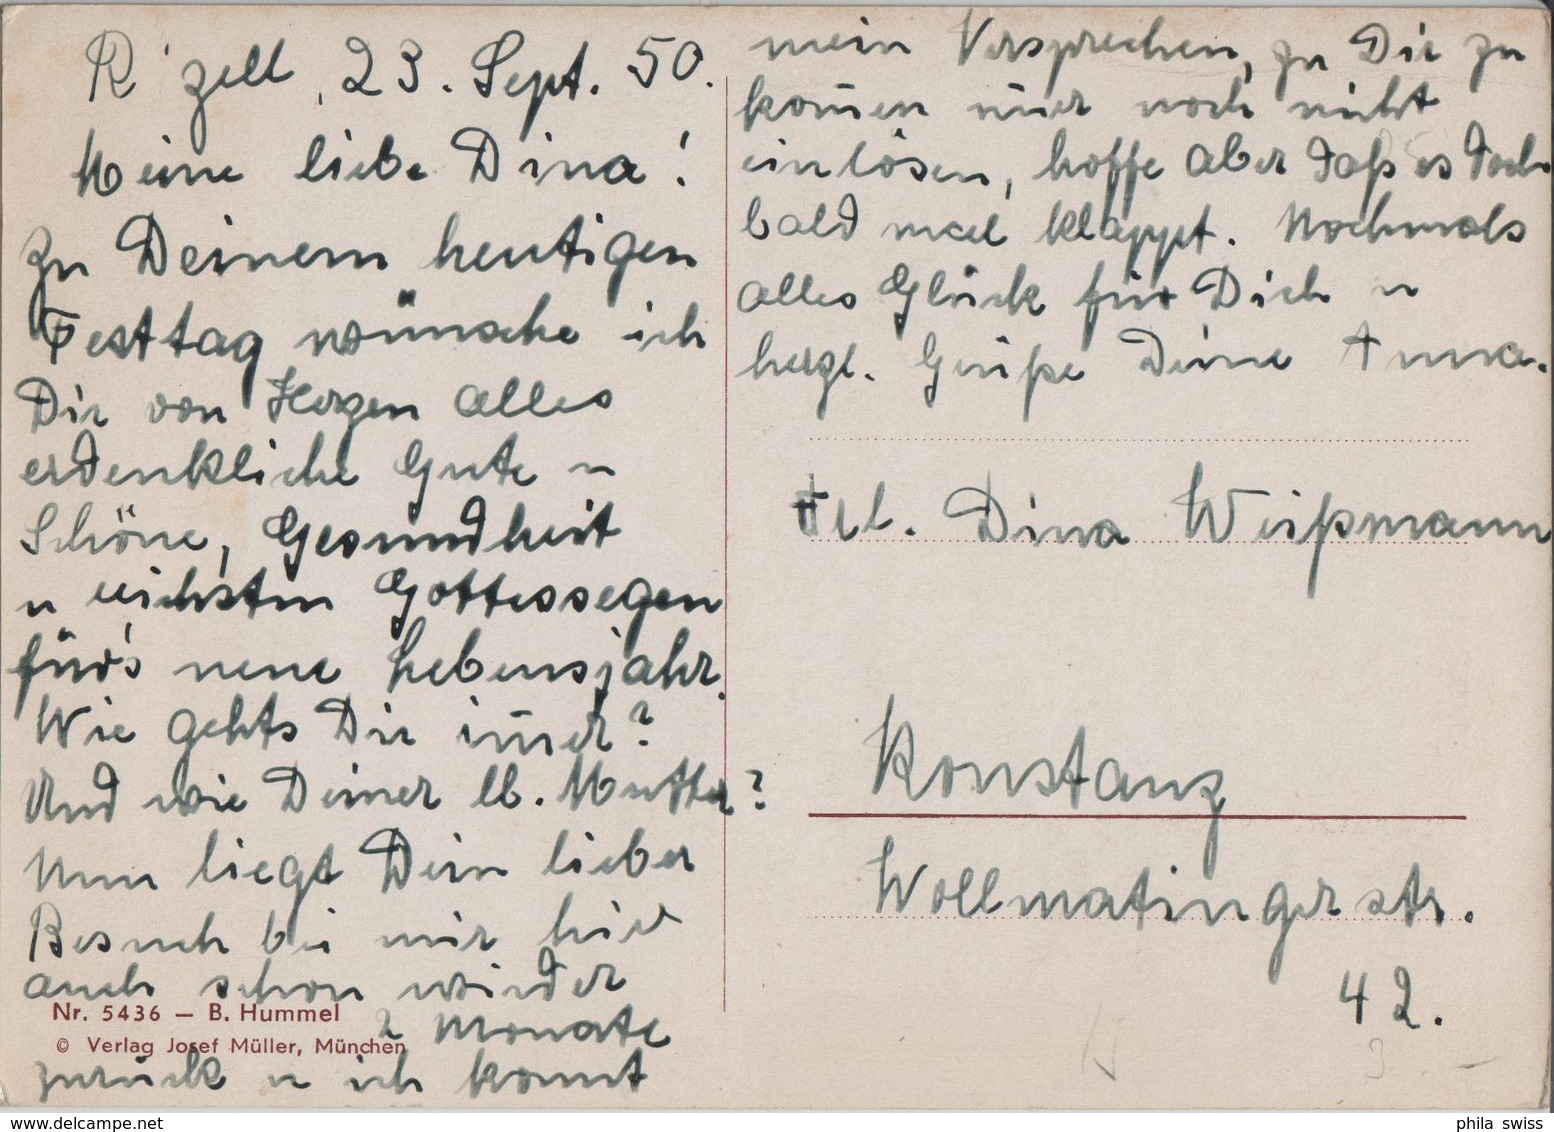 R'zell, 23. Sept. 50.
Meine liebe Dina!
Zu Deinem heutigen
Festtag wünsche ich
Dir von Herzen alles
erdenkliche Gute u
Schöne, Gesundheit
u reichsten Gottessegen
für's neue Lebensjahr.
Wie gehts Dir im̄er?
Und wie Deiner lb. Mutter?
Nun liegt Dein lieber
Besuch bei mir hier
auch schon wieder
2 Monate
zurück u ich konnt
Nr. 5436 — B. Hummel
© Verlag Josef Müller, München
mein Versprechen, zu Dir zu
kom̄en im̄er noch nicht
einlösen, hoffe aber daß es doch
bald mal klappt. Nochmals
alles Glück für Dich u
herzl. Grüße Deine Anna.
Frl. Dina Weißmann
Konstanz
Wollmatingerstr.
42.
phila swiss